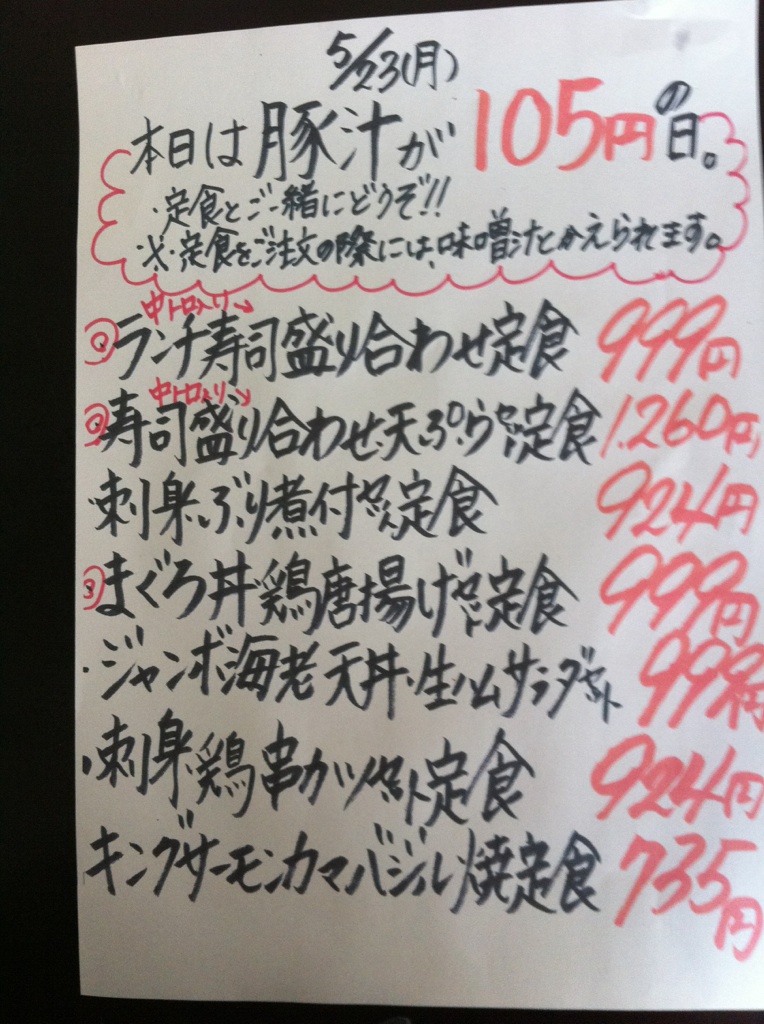 5/23(月)
本日は豚汁が105円の日。
・定食とご一緒にどうぞ!!
※定食をご注文の際には、味噌汁とかえられます。
中トロ入り↘
◎ランチ寿司盛り合わせ定食 999円
中トロ入り↘
◎寿司盛り合わせ・天ぷらセット定食 1.260円
・刺身・ぶり煮付セット定食 924円
◎まぐろ丼・鶏唐揚げセット定食 999円
・ジャンボ海老天丼・生ハムサラダセット 999円
・刺身・鶏串カツセット定食 924円
キングサーモンカマバジル焼定食 735円